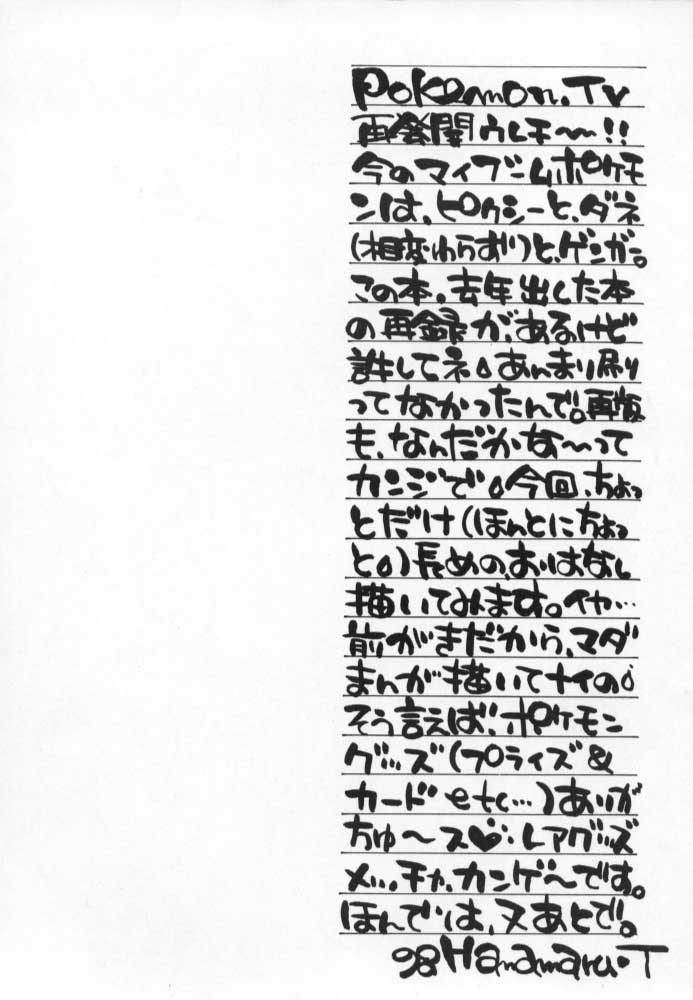 Pokemon.Tv
再発開ウレチ〜〜!!
今のマイブームポケモ
ンは、ピクシーと、ダネ
(相変わらず)と、ゲンガー。
この本。去年出した本
の再録が、あるけど
許してネ。あんまり刷り
ってなかったんで。再版
も、なんだかな〜って
カンジで。今回、ちょっ
とだけ(ほんとにちょっ
と。)長めの、おはなし
描いてみます。イヤ…
前がきだから、マダ
まんが描いてナイの。
そう言えば、ポケモン
グッズ(プライズ&
カード etc…)ありが
ちゅ〜ス♥:レアグッズ
メッ、チャ、カンゲ〜です。
ほんでは、又あとで。
'98 Hanamaru・T